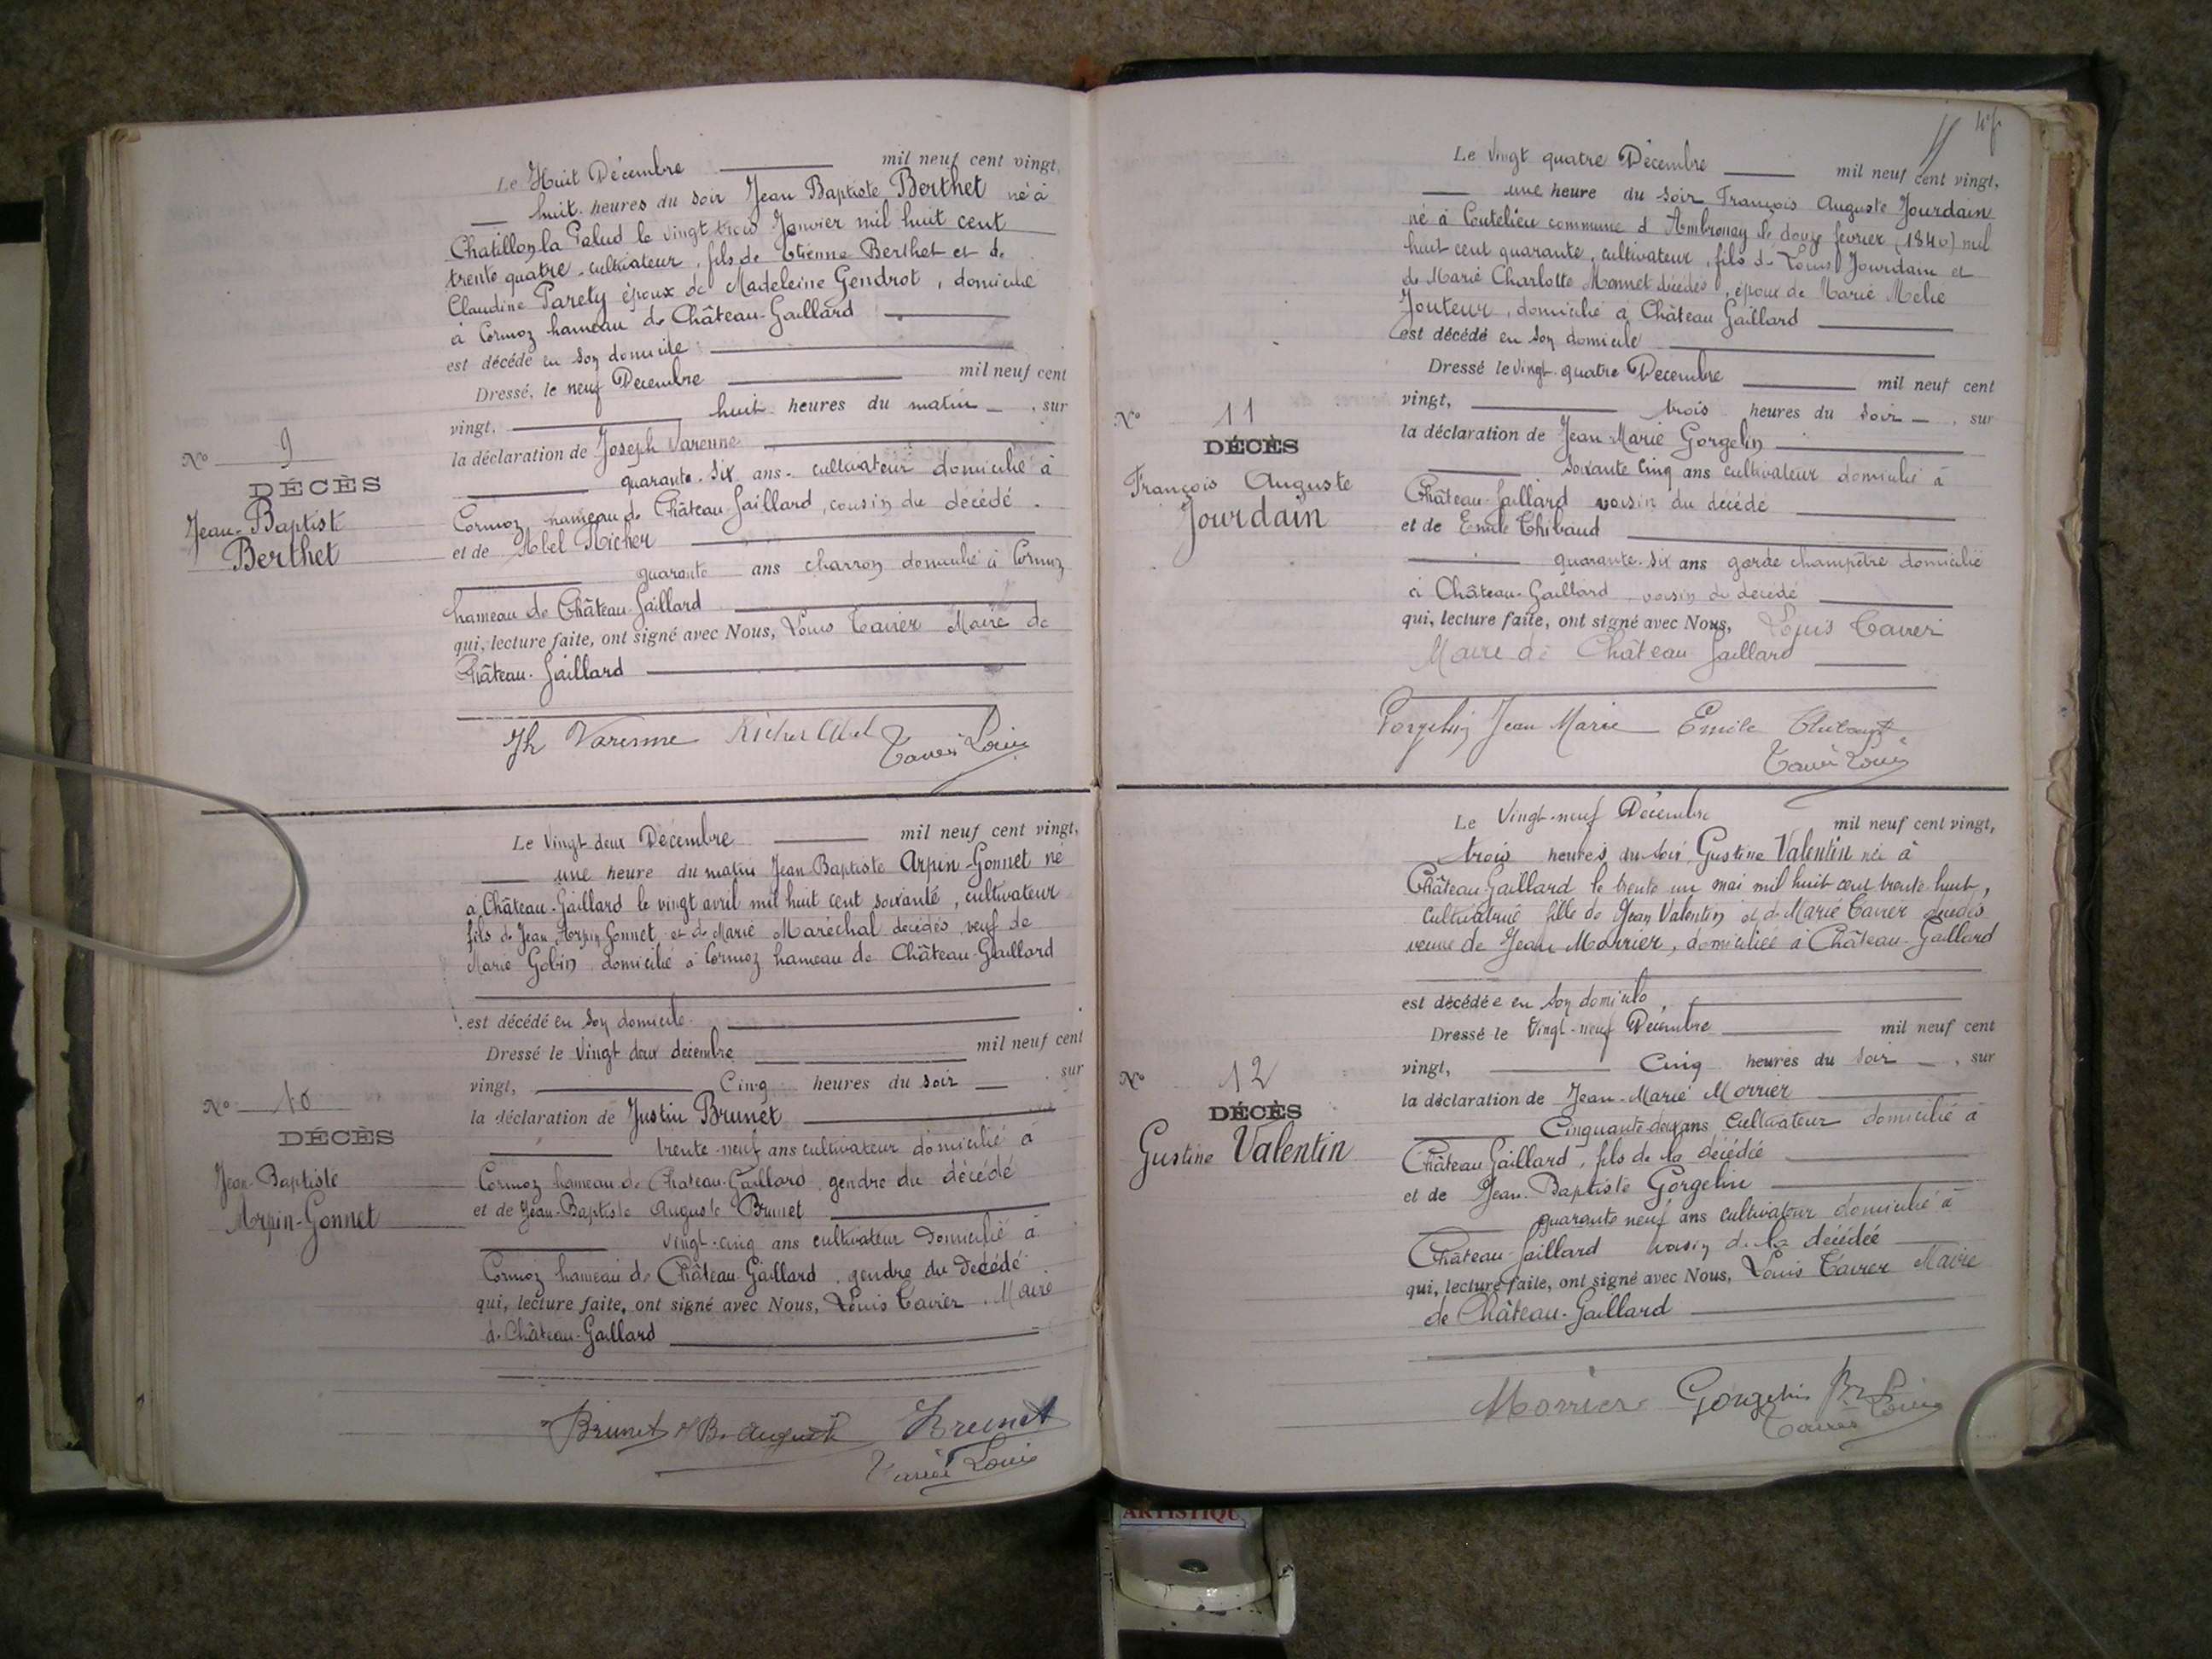 Le Huit Décembre mil neuf cent vingt,
huit heures du soir Jean Baptiste Berthet né à
Chatillon la Palud le vingt trois Janvier mil huit cent
trente quatre, cultivateur, fils de Etienne Berthet et de
Claudine Parety époux de Madeleine Gendrot, domicilié
à Cormoz hameau de Château-Gaillard
est décédé en son domicile
Dressé, le neuf Decembre mil neuf cent
vingt, huit heures du matin, sur
la déclaration de Joseph Varenne
quarante-six ans, cultivateur domicilié à
Cormoz, hameau de Château-Gaillard, cousin du décédé.
et de Abel Richer
quarante ans charron domicilié à Cormoz
hameau de Château-Gaillard
qui, lecture faite, ont signé avec Nous, Louis Tavier Maire de
Château-Gaillard
N° 9
DÉCÈS
Jean-Baptiste
Berthet
Jh Varenne Richer Abel
Tavier Louis
Le Vingt deux Décembre mil neuf cent vingt,
une heure du matin Jean-Baptiste Arpin-Gonnet né
à Château-Gaillard le vingt avril mil huit cent soixante, cultivateur
fils de Jean Arpin Gonnet et de Marie Maréchal décédés, veuf de
Marie Gobin, domicilié à Cormoz hameau de Château-Gaillard
est décédé en son domicile
Dressé le Vingt deux décembre mil neuf cent
vingt, Cinq heures du soir, sur
la déclaration de Justin Brunet
trente-neuf ans cultivateur domicilié à
Cormoz hameau de Château-Gaillard, gendre du décédé
et de Jean-Baptiste Auguste Brunet
vingt-cinq ans cultivateur domicilié à
Cormoz hameau de Château-Gaillard, gendre du décédé
qui, lecture faite, ont signé avec Nous, Louis Tavier, Maire
de Château-Gaillard
N° 10
DÉCÈS
Jean-Baptiste
Arpin-Gonnet
Brunet J B Auguste Brunet
Tavier Louis
Le Vingt quatre Décembre mil neuf cent vingt,
une heure du soir François Auguste Jourdain
né à Coutelieu commune d'Ambronay le douze fevrier (1840) mil
huit cent quarante, cultivateur, fils de Louis Jourdain et
de Marie Charlotte Monnet décédés, époux de Marie Mélie
Jouteur, domicilié à Château Gaillard
est décédé en son domicile
Dressé le vingt-quatre Decembre mil neuf cent
vingt, trois heures du soir, sur
la déclaration de Jean Marie Gorgelin
soixante cinq ans cultivateur domicilié à
Château-Gaillard voisin du décédé
et de Emile Thibaud
quarante-six ans garde champêtre domicilié
à Château-Gaillard voisin du décédé
qui, lecture faite, ont signé avec Nous, Louis Tavier
Maire de Château Gaillard
N° 11
DÉCÈS
François Auguste
Jourdain
Gorgelin Jean Marie Emile Thibaud
Tavier Louis
Le Vingt-neuf Décembre mil neuf cent vingt,
trois heures du soir Gustine Valentin née à
Château-Gaillard le trente un mai mil huit cent trente huit,
cultivatrice fille de Jean Valentin et de Marie Tavier décédés
veuve de Jean Morrier, domiciliée à Château-Gaillard
est décédée en son domicile,
Dressé le Vingt-neuf Décembre mil neuf cent
vingt, Cinq heures du soir, sur
la déclaration de Jean-Marie Morrier
Cinquante-deux ans Cultivateur domicilié à
Château Gaillard, fils de la décédée
et de Jean-Baptiste Gorgelin
quarante neuf ans cultivateur domicilié à
Château-Gaillard voisin de la décédée
qui, lecture faite, ont signé avec Nous, Louis Tavier Maire
de Château-Gaillard
N° 12
DÉCÈS
Gustine Valentin
Morrier Gorgelin
Tavier Louis
ARTISTIQU